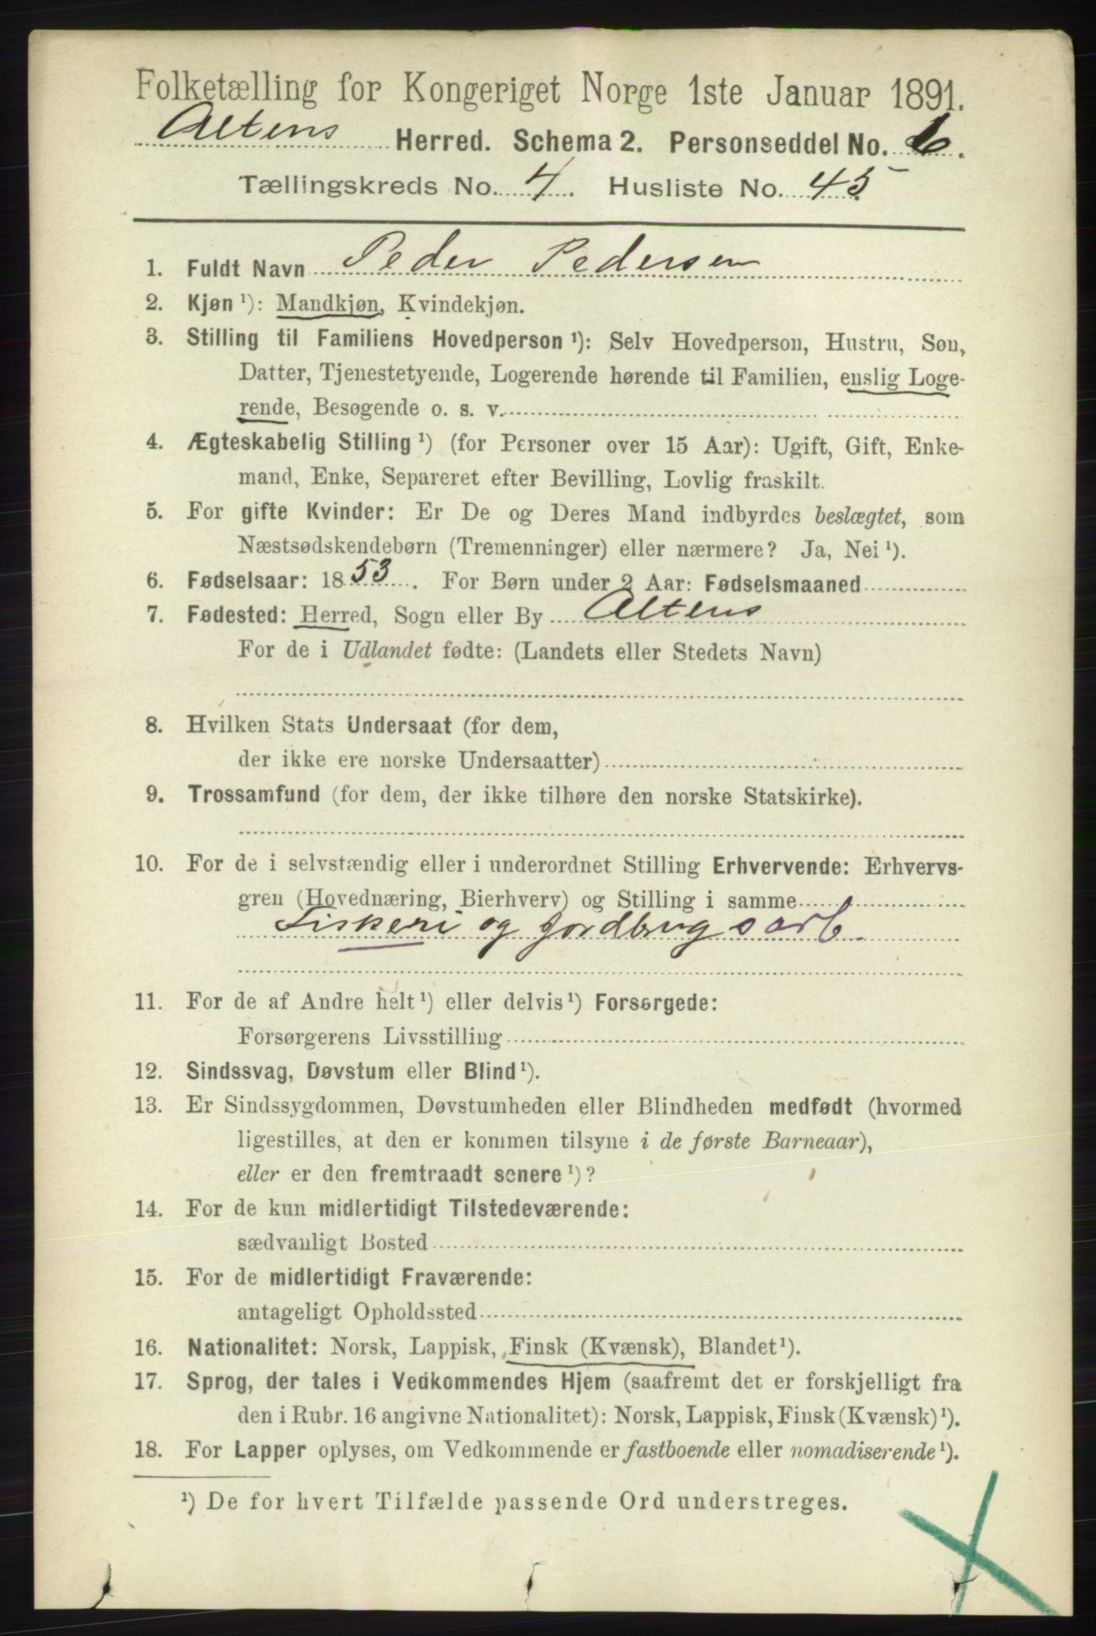 Folketælling for Kongeriget Norge 1ste Januar 1891.
Altens Herred. Schema 2. Personseddel No. 6.
Tællingskreds No. 4. Husliste No. 45
1. Fuldt Navn Peder Pedersen
2. Kjøn ¹): Mandkjøn, Kvindekjøn.
3. Stilling til Familiens Hovedperson ¹): Selv Hovedperson, Hustru, Søn,
Datter, Tjenestetyende, Logerende hørende til Familien, enslig Loge-
rende, Besøgende o. s. v.
4. Ægteskabelig Stilling ¹) (for Personer over 15 Aar): Ugift, Gift, Enke-
mand, Enke, Separeret efter Bevilling, Lovlig fraskilt.
5. For gifte Kvinder: Er De og Deres Mand indbyrdes beslægtet, som
Næstsødskendebørn (Tremenninger) eller nærmere? Ja, Nei ¹).
6. Fødselsaar: 1853. For Børn under 2 Aar: Fødselsmaaned
7. Fødested: Herred, Sogn eller By Altens
For de i Udlandet fødte: (Landets eller Stedets Navn)
8. Hvilken Stats Undersaat (for dem,
der ikke ere norske Undersaatter)
9. Trossamfund (for dem, der ikke tilhøre den norske Statskirke).
10. For de i selvstændig eller i underordnet Stilling Erhvervende: Erhvervs-
gren (Hovednæring, Bierhverv) og Stilling i samme
Fiskeri og jordbrugsarb.
11. For de af Andre helt ¹) eller delvis ¹) Forsørgede:
Forsørgerens Livsstilling
12. Sindssvag, Døvstum eller Blind ¹).
13. Er Sindssygdommen, Døvstumheden eller Blindheden medfødt (hvormed
ligestilles, at den er kommen tilsyne i de første Barneaar),
eller er den fremtraadt senere ¹)?
14. For de kun midlertidigt Tilstedeværende:
sædvanligt Bosted
15. For de midlertidigt Fraværende:
antageligt Opholdssted
16. Nationalitet: Norsk, Lappisk, Finsk (Kvænsk), Blandet ¹).
17. Sprog, der tales i Vedkommendes Hjem (saafremt det er forskjelligt fra
den i Rubr. 16 angivne Nationalitet): Norsk, Lappisk, Finsk (Kvænsk) ¹).
18. For Lapper oplyses, om Vedkommende er fastboende eller nomadiserende ¹).
¹) De for hvert Tilfælde passende Ord understreges.